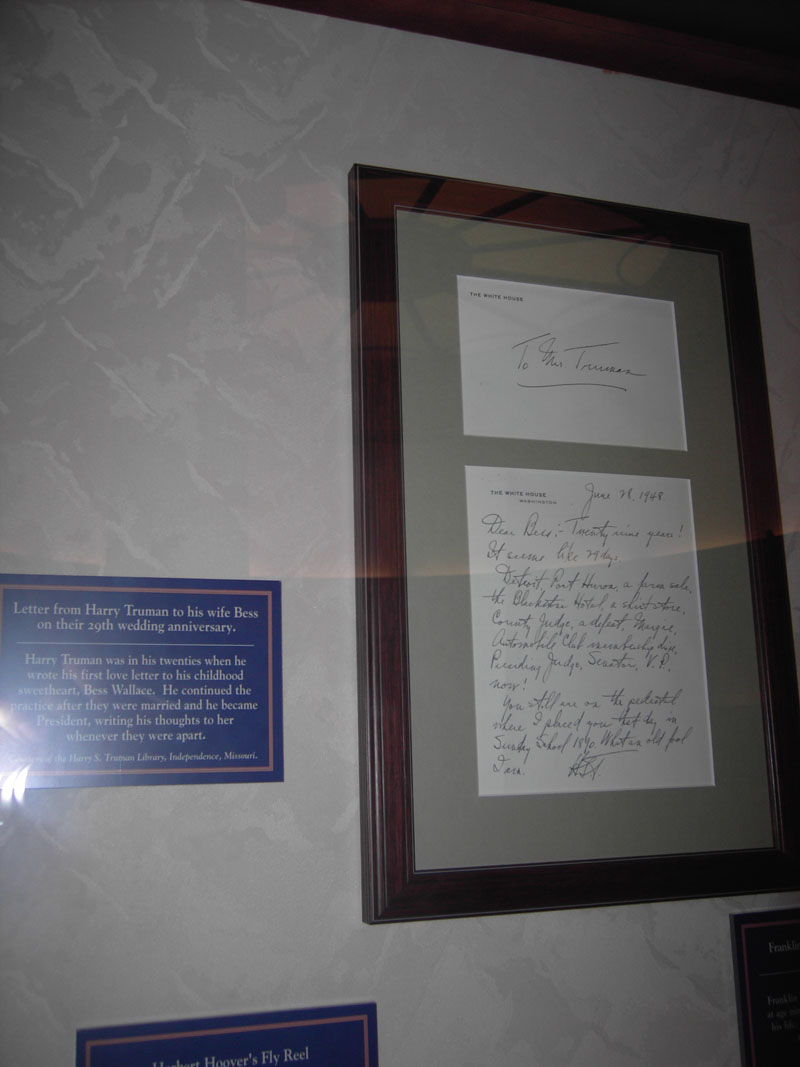 THE WHITE HOUSE
To Mrs. Truman
THE WHITE HOUSE
WASHINGTON
June 28, 1948
Dear Bess:- Twenty nine years!
It seems like 29 days.
Detroit, Port Huron, a farm sale,
the Blackstone Hotel, a shirt store,
County Judge, a defeat, Margie,
Automobile Club membership drive,
Presiding Judge, Senator, V.P.,
now!
You still are on the pedestal
where I placed you that day in
Sunday School 1890. What an old fool
I am. HST.
Letter from Harry Truman to his wife Bess
on their 29th wedding anniversary.
Harry Truman was in his twenties when he
wrote his first love letter to his childhood
sweetheart, Bess Wallace. He continued the
practice after they were married and he became
President, writing his thoughts to her
whenever they were apart.
Courtesy of the Harry S. Truman Library, Independence, Missouri.
Herbert Hoover's Fly Reel
Franklin
Franklin
at age
his life.